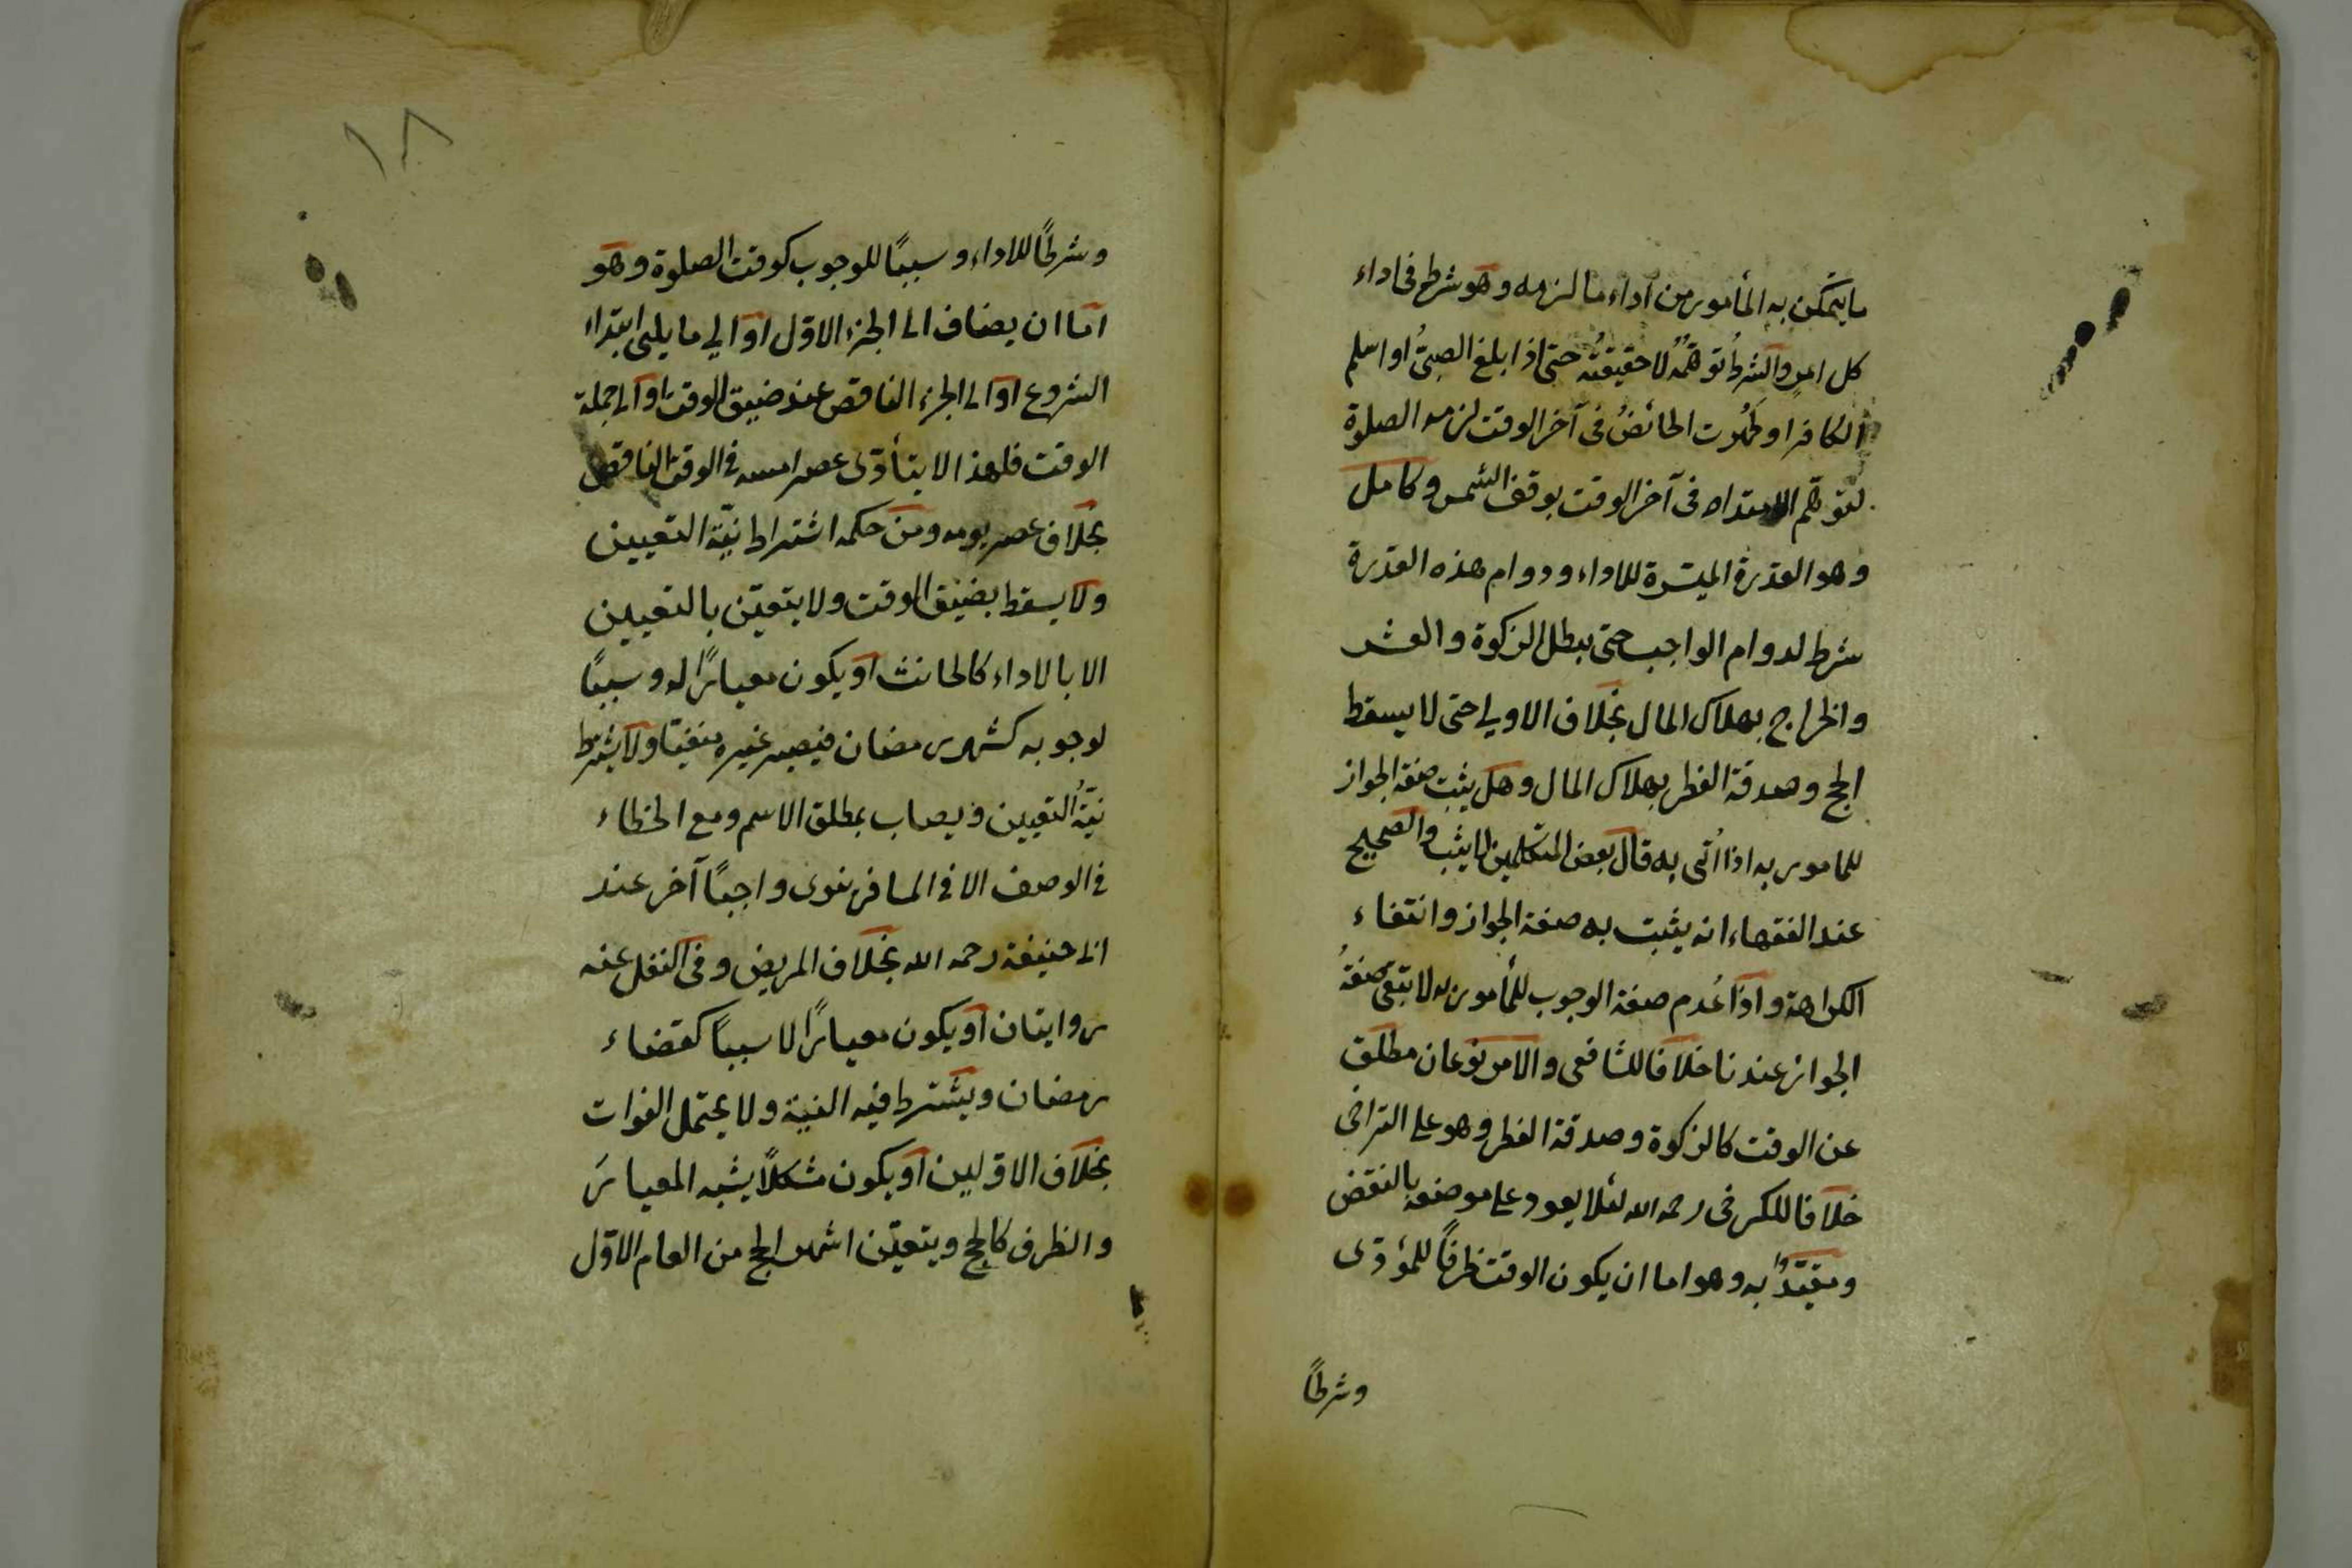 ما يتمكن به المأمور من أداء ما لزمه وهو شرط فى اداء
كل امر والشرط توهمُّه لا حقيقتُه حتى اذا بلغ الصبىُّ او اسلم
الكافر او طَهُرت الحائضُ فى آخر الوقت لزمه الصلوة
لتوهّم الامتداد فى آخر الوقت بوقف الشمس وكامل
وهو القدرة الميسّرة للاداء ودوام هذه القدرة
شرط لدوام الواجب حتى يبطل الزكوة والعشر
والخراج بهلاك المال بخلاف الاولى حتى لا يسقط
الحج وصدقة الفطر بهلاك المال وهل يثبت صفة الجواز
للمامور به اذا اُتى به قال بعض المتكلمين لا يثبت والصحيح
عند الفقهاء انه يثبت به صفة الجواز وانتفاء
الكراهة واذا عُدم صفة الوجوب للمأمور به لا تبقى صفةُ
الجواز عندنا خلافا للشافعى والامر نوعان مطلق
عن الوقت كالزكوة وصدقة الفطر وهو على التراخى
خلافا للكرخى رحمه الله لئلا يعود على موضوعه بالنقض
ومقيّدٌ به وهو اما ان يكون الوقت ظرفًا للمؤدّى
وشرطًا
١٨
وشرطًا للاداء وسببًا للوجوب كوقت الصلوة وهو
امّا ان يضاف الى الجزء الاوّل او الى ما يلى ابتداء
الشروع او الى الجزء الناقص عند ضيق الوقت او الى جملة
الوقت فلهذا لا يتأدّى عصر امسه فى الوقت الناقص
بخلاف عصر يومه ومن حكمه اشتراط نيّة التعيين
ولا يسقط بضيق الوقت ولا يتعيّن بالتعيين
الا بالاداء كالحانث او يكون معيارًا له وسببًا
لوجوبه كشهر رمضان فيصير غيره منفيّا ولا يشترط
نيّةُ التعيين ويصاب بمطلق الاسم ومع الخطاء
فى الوصف الا فى المسافر ينوى واجبًا آخر عند
ابى حنيفة رحمه الله بخلاف المريض وفى النفل عنه
روايتان او يكون معيارًا لا سببًا كقضاء
رمضان ويشترط فيه النية ولا يحتمل الفوات
بخلاف الاوّلين او يكون مشكلًا يشبه المعيارَ
والظرف كالحج ويتعيّن اشهر الحج من العام الاوّل